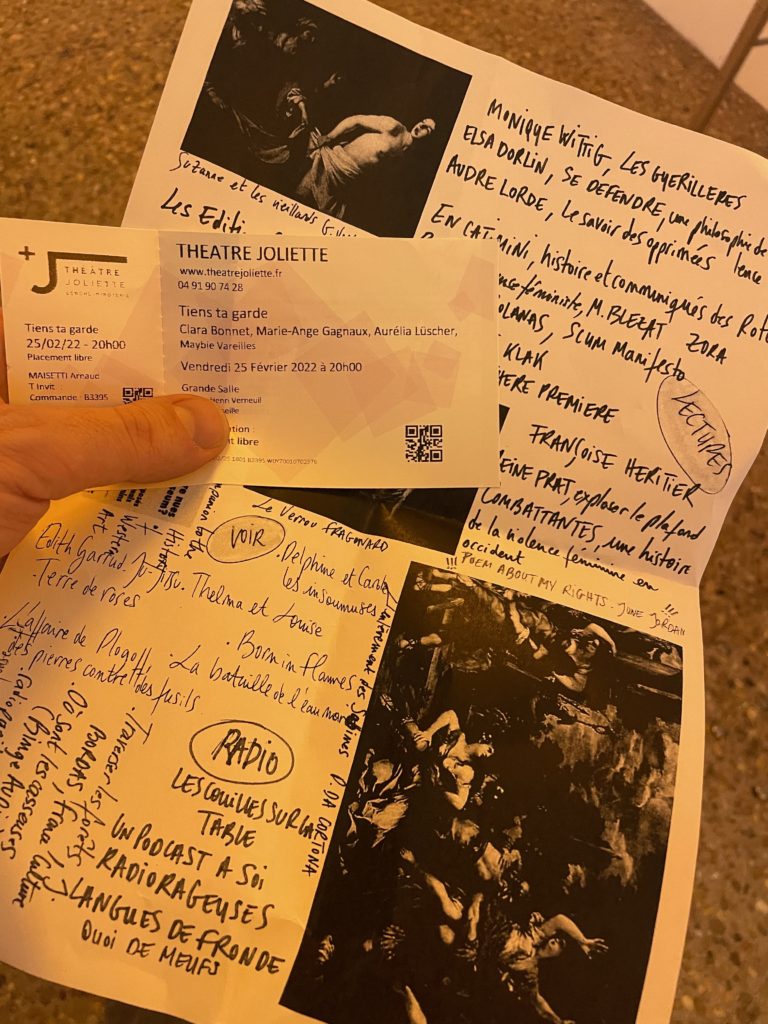 Suzanne et les vieillards
Les Editi
MONIQUE WITTIG, LES GUERILLERES
ELSA DORLIN, SE DEFENDRE, une philosophie de
AUDRE LORDE, Le savoir des opprimées
lence
EN CATIMINI, histoire et communiqués des Rote
féministe, M. BLEZAT
ZORA
OLANAS, SCUM Manifesto
KLAK
HERE PREMIERE
LECTURES
FRANÇOISE HERITIER
REINE PRAT, exploser le plafond
COMBATTANTES, une histoire
de la violence féminine en
occident
!!! POEM ABOUT MY RIGHTS. JUNE JORDAN !!!
+J THÉÂTRE
JOLIETTE
Tiens ta garde
25/02/22 - 20h00
Placement libre
MAISETTI Arnaud
T Invit
Commande : B3395
THEATRE JOLIETTE
www.theatrejoliette.fr
04 91 90 74 28
Tiens ta garde
Clara Bonnet, Marie-Ange Gagnaux, Aurélia Lüscher,
Maybie Vareilles
Vendredi 25 Février 2022 à 20h00
Grande Salle
Henri Verneuil
eille
tion :
t libre
Le Verrou FRAGONARD
VOIR
. Delphine et Carole
les insoumuses
Edith Garrud. Ju-Jitsu. Thelma et Louise
. Terre de roses
. L'affaire de Plogoff,
des pierres contre des fusils
. Born in Flames
. La bataille de l'eau noire
L'enlèvement des Sabines P. DA CORTONA
. Traverser les forêts
BORDAS, France Culture
Où sont les casseuses
RADIO
LES COUILLES SUR LA
TABLE
UN PODCAST A SOI
RADIORAGEUSES
LANGUES DE FRONDE
QUOI DE MEUFS